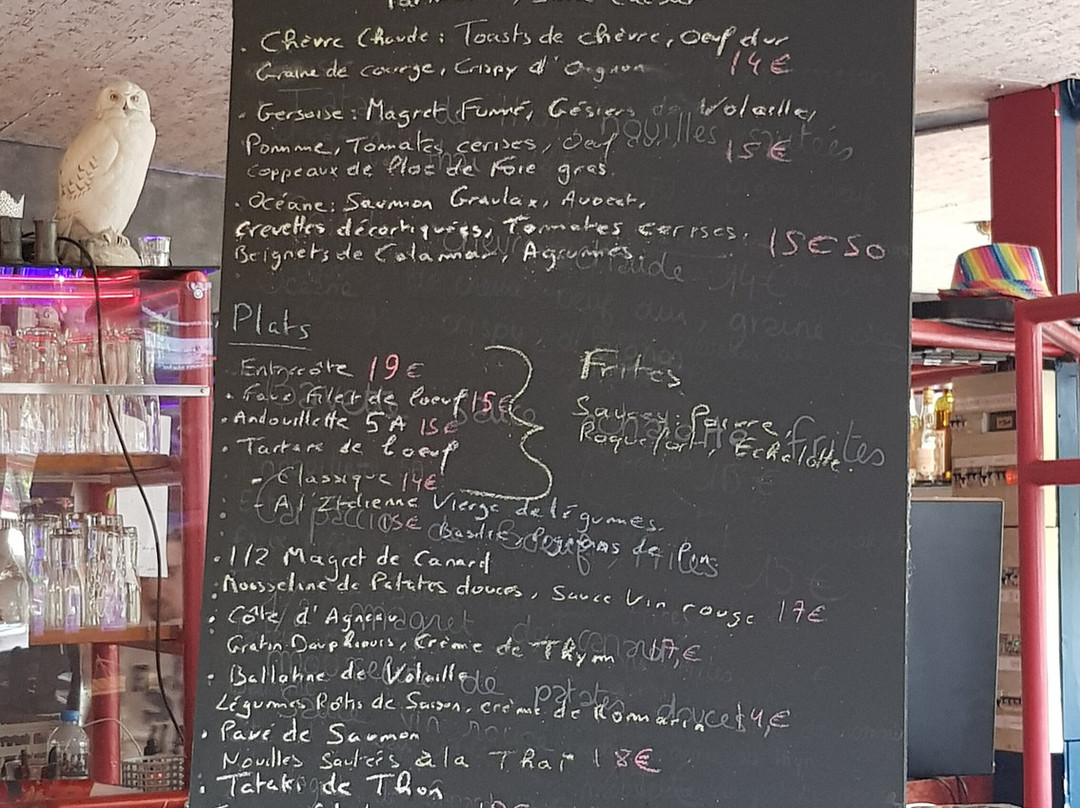 Chèvre Chaude : Toasts de chèvre, Oeuf dur
Graine de courge, Crispy d'Oignon 14€
Gersoise : Magret Fumé, Gésiers de Volailles,
Pomme, Tomates cerises, Oeuf 15€
Coppeaux de Bloc de Foie gras.
Océane : Saumon Gravlax, Avocat,
Crevettes décortiquées, Tomates cerises. 15€50
Beignets de Calamar, Agrumes.
Plats
Entrecôte 19€
Faux Filet de boeuf 15€
Andouillette 5A 15€
Tartare de boeuf
- Classique 14€
- A l'Italienne Vierge de légumes.
15€ Basilic, Pignons de Pins
Frites
Sauces : Poivre,
Roquefort, Echalotte.
1/2 Magret de Canard
Mousseline de Patates douces, Sauce Vin rouge 17€
Côte d'Agneau
Gratin Dauphinois, Crème de Thym 17,€
Ballotine de Volaille
Légumes Rôtis de Saison, crème de Romarin 14,€
Pavé de Saumon
Nouilles Sautées à la Thaï 18€
Tataki de Thon